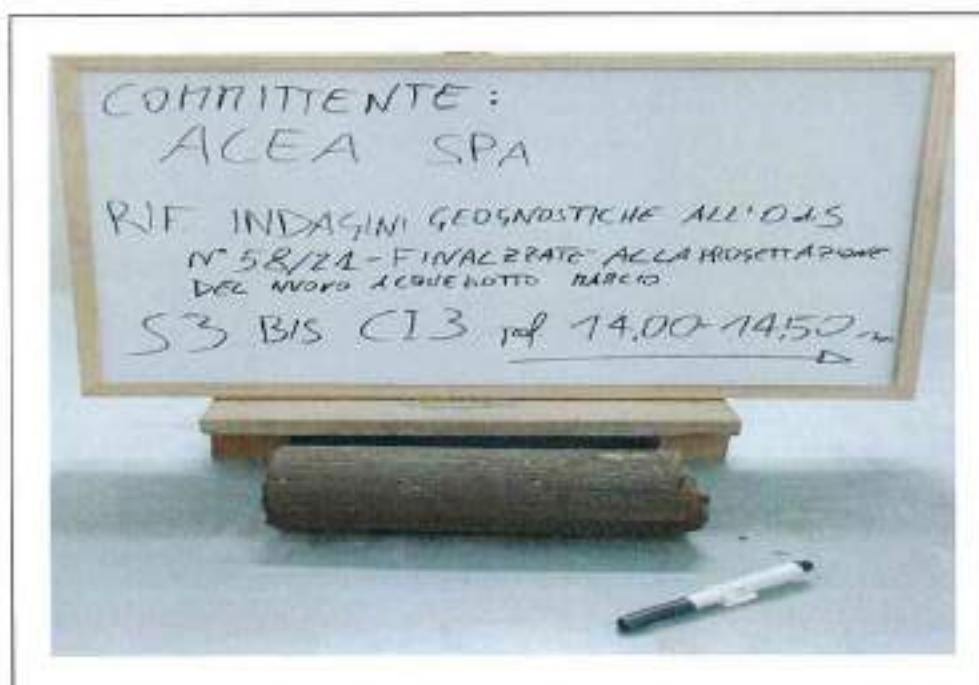 COMMITTENTE:
ACEA SPA
RIF INDAGINI GEOGNOSTICHE ALL'OdS
N° 58/21 - FINALZZATE ALLA PROGETTAZIONE
DEL NUOVO ACQUEDOTTO MARCIO
S3 BIS CI3 prof 14,00-14,50 m